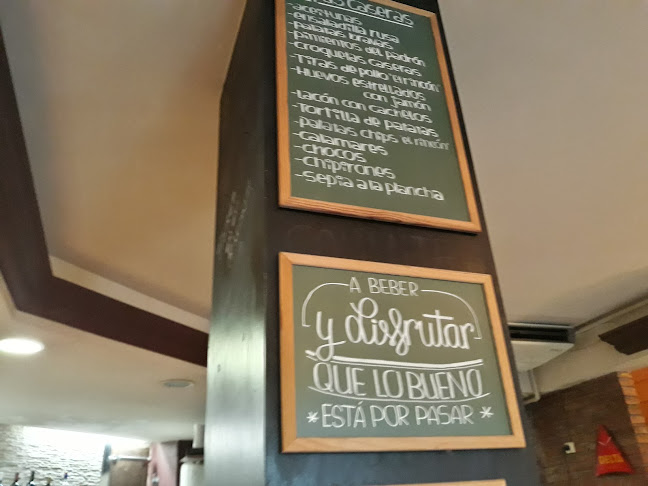 Caseras
-aceitunas
-ensaladilla rusa
-patatas bravas
-pimientos del padrón
-croquetas caseras
-Tiras de pollo "el rincón"
-Huevos estrellados
con jamón
-Lacón con cachelos
-Tortilla de patatas
-patatas chips "el rincón"
-calamares
-chocos
-chipirones
-sepia a la plancha
A BEBER
y disfrutar
QUE LO BUENO
*ESTÁ POR PASAR*